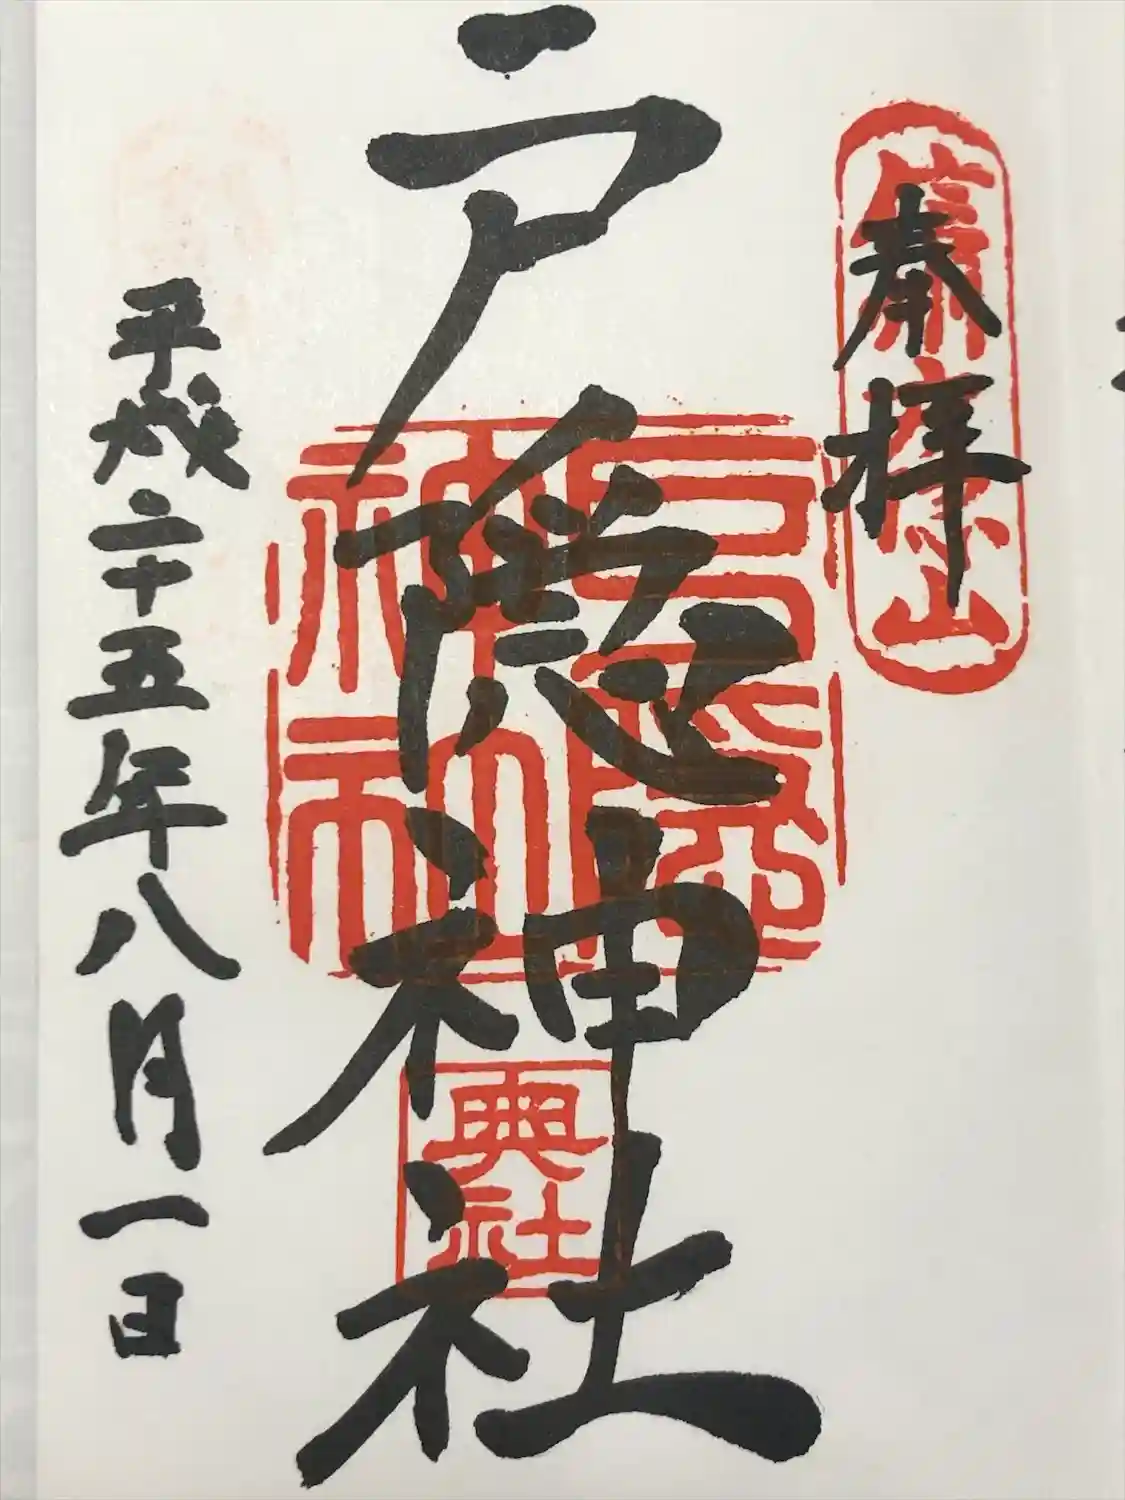 奉拝
戸隠神社
戸隠神社
奥社
平成二十五年八月一日